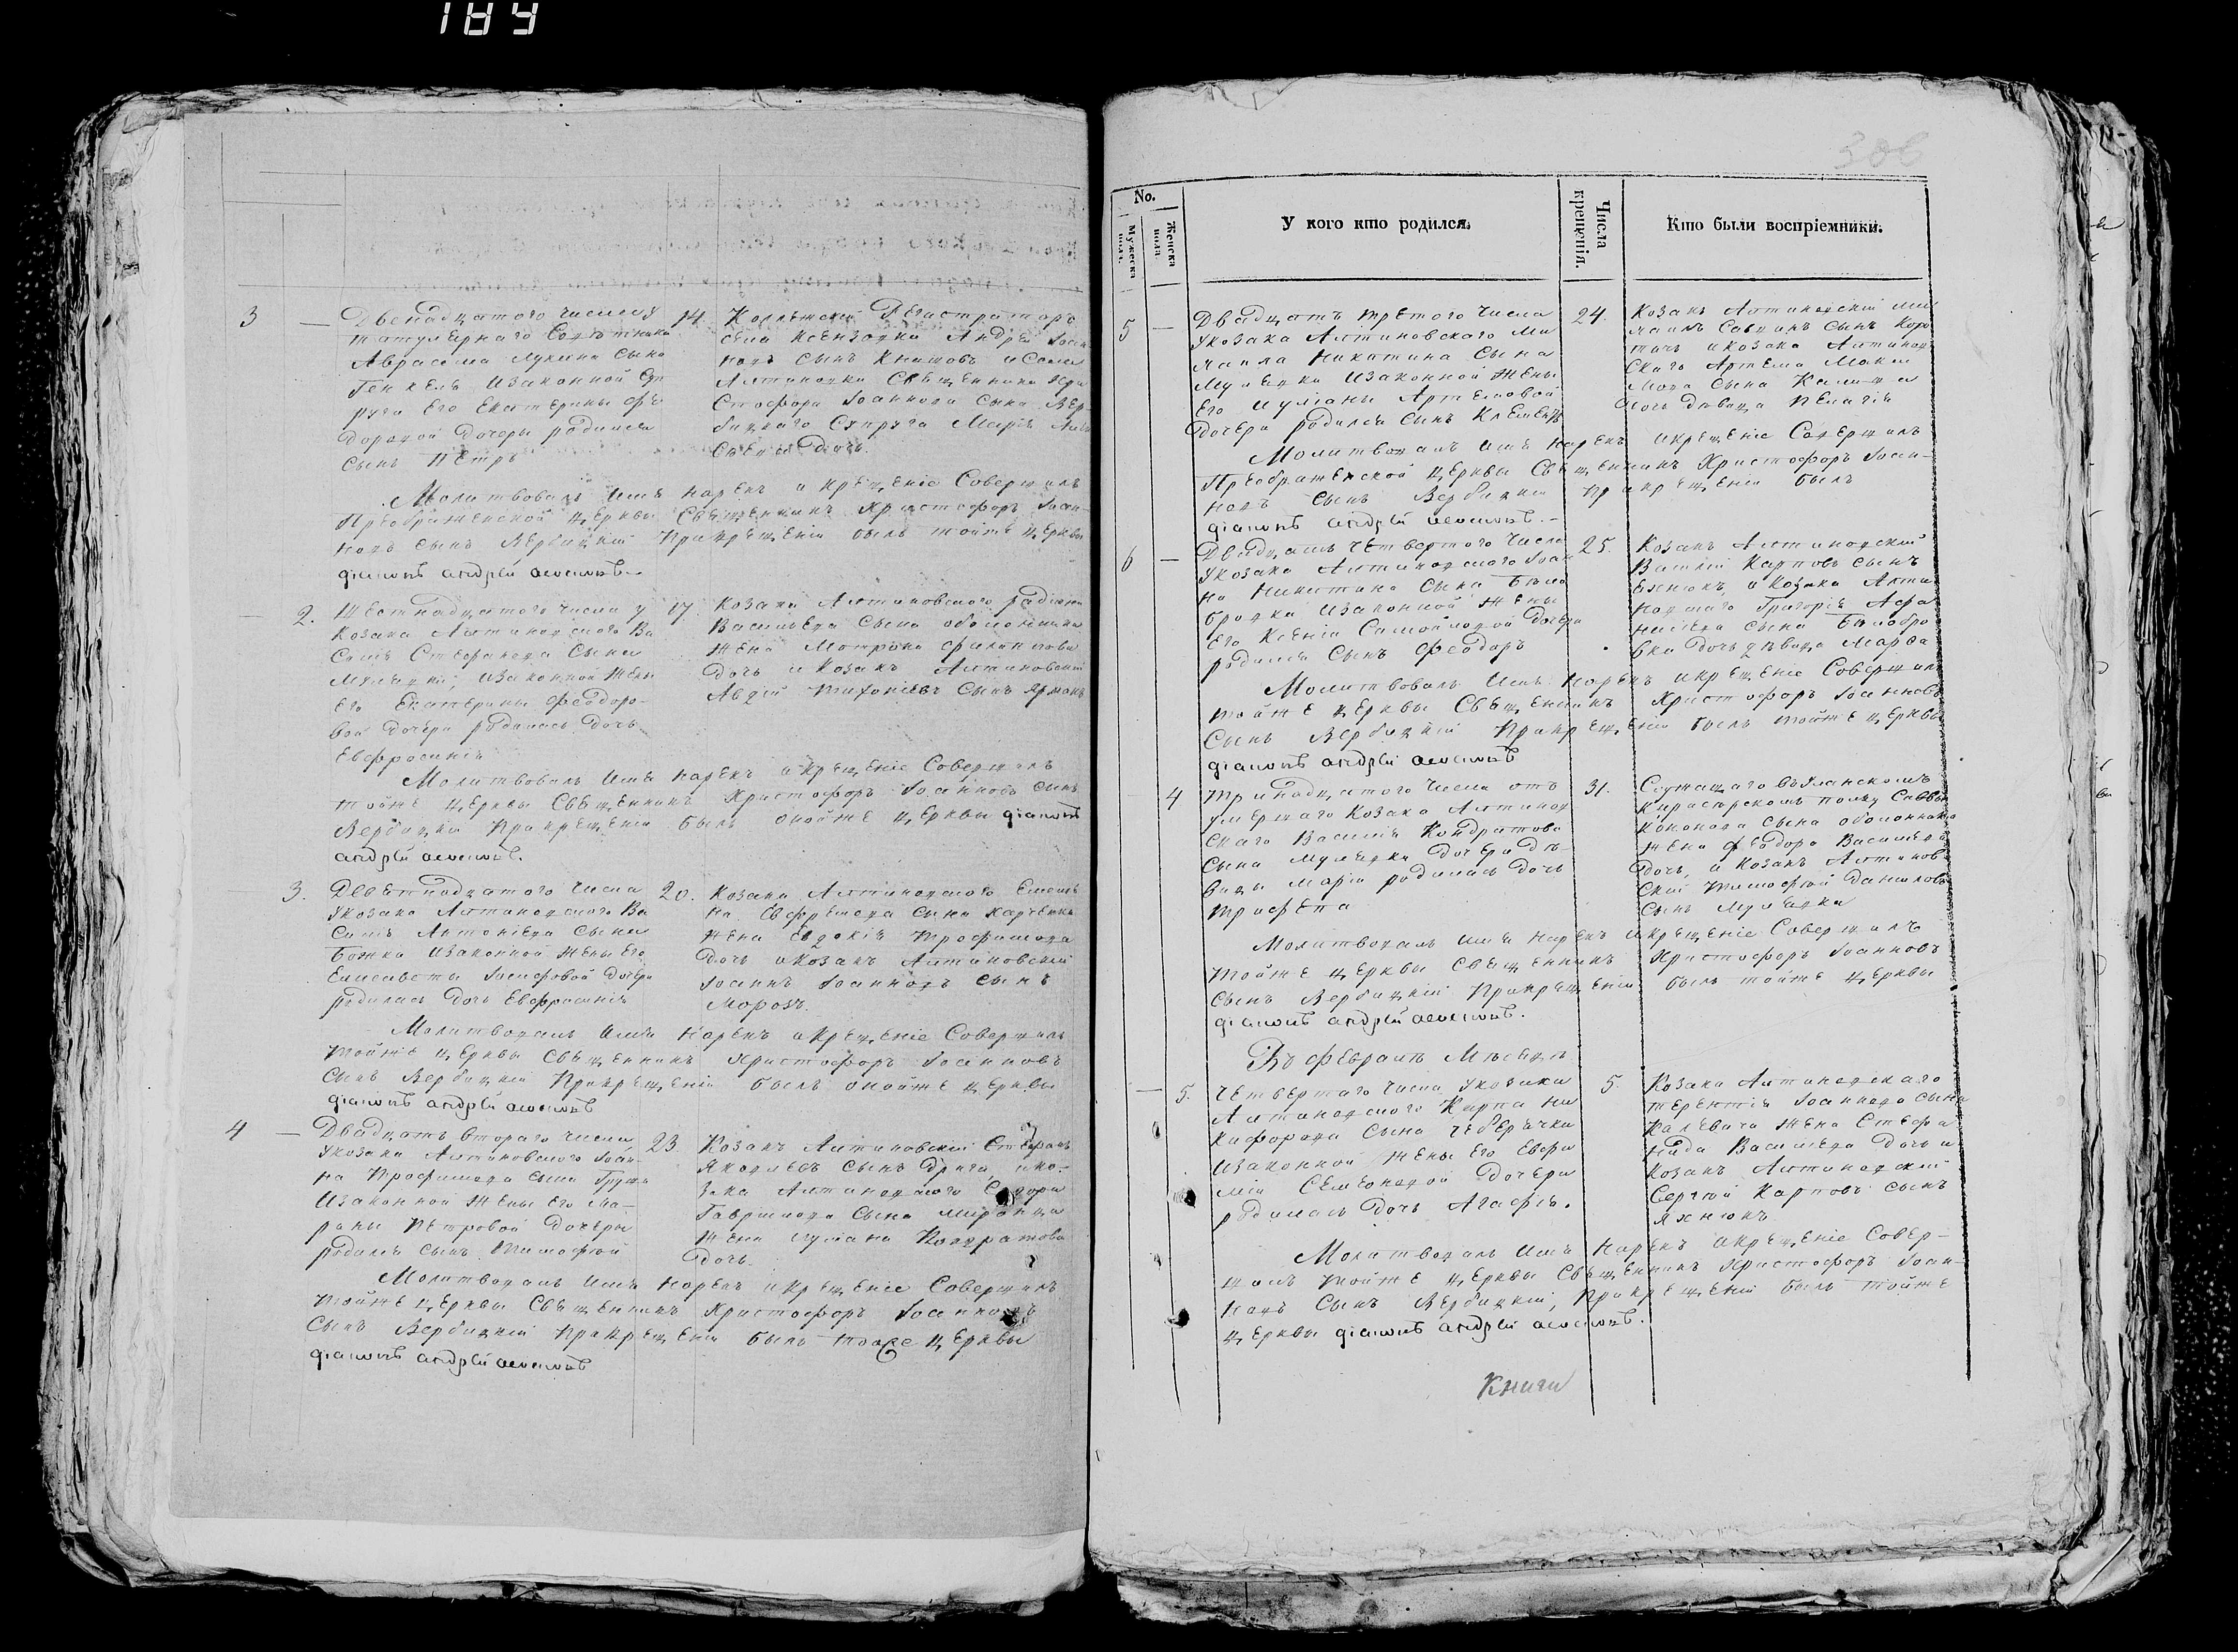 189
3
Двенадцатого числа у
14.
титулярного Советника
Авраама Лукина сына
руги Его Екатерины Фе
доровой дочери родился
сынъ Петръ
Коллежскій Регистраторъ
Андрей Іоан
новъ сынъ
Священника Хри
стофора Іоаннова сына Вер
бицкаго Супруга Марія
дочь.
Молитвовалъ имя нарекъ и крещеніе Совершилъ
Преображенской церквы Священникъ Христофоръ Іоан-
новъ сынъ Вербицкій При крещеніи былъ тойже церквы
діаконъ андрей
2.
Шестнадцатого числа у
17
Козака Алтиновского Ва
силія Стефанова сына
законной жены
Его Екатерины Феодоро-
вой дочери родилась дочь
Евфросинія
Козака Алтиновского
Васильева сына
жена Матрона Филиппова
дочь и Козакъ Алтиновскій
Авдій сынъ
Молитвовалъ имя нарекъ и крещеніе Совершилъ
тойже церквы Священникъ Христофоръ Іоанновъ сынъ
Вербицкій При крещеніи былъ оной же церквы діаконъ
андрей
3.
Девятнадцатого числа
20.
У козака Алтиновского Ва
силія Антоніева сына
Божка и законной жены Его
Елисаветы Іосифовой дочери
родилась дочь Евфросинія
Козака Алтиновского
Ефремова сына Харченка
жена Евдокія Трофимова
дочь и Козакъ Алтиновскій
Іоаннъ Іоанновъ сынъ
Морозъ.
Молитвовалъ имя нарекъ и крещеніе Совершилъ
тойже церквы Священникъ Христофоръ Іоанновъ
сынъ Вербицкій При крещеніи былъ оной же церквы
діаконъ андрей
4
Двадцать втораго числа
23.
У козака Алтиновского Іоан-
на Трофимова сына
И законной жены Его Ма-
рины Петровой дочери
родилъ сынъ Тимофей
Козакъ Алтиновскій Стефанъ
Яковлевъ сынъ и ко-
зака Алтиновского
Гавриилова сына
жена Іуліана Кондратова
дочь.
Молитвовалъ имя нарекъ и крещеніе Совершилъ
тойже церквы Священникъ Христофоръ Іоанновъ
сынъ Вербицкій При крещеніи былъ тоже церквы
діаконъ андрей
No.
Мужеска пола.
Женска пола.
У кого кто родился.
Числа крещенія.
Кто были воспріемники.
5
Двадцать третого числа
24.
У козака Алтиновского Ми
хаила Никитина сына
Мулявки и законной жены
Его Іуліаны Артемовой
дочери родился сынъ Климентъ
Козакъ Алтиновскій Ми
хаилъ Саввинъ сынъ
и козака Алтинов
скаго Артема
сына
дочь девица Пелагія
Молитвовалъ имя нарекъ и крещеніе Совершилъ
Преображенской церквы Священникъ Христофоръ Іоан-
новъ сынъ Вербицкій При крещеніи былъ
діаконъ андрей
6
Двадцать четвертого числа
25.
У козака Алтиновского Іоан
на Никитина сына Бѣло
бровки и законной жены
Его Ксеніи Самойловой дочери
родился сынъ Феодоръ
Козакъ Алтиновскій
Василій Карповъ сынъ
и Козака Алти
новскаго Григорія Афа
насіева сына Бѣлобро
вки дочь дѣвица Марфа
Молитвовалъ имя нарекъ и крещеніе Совершилъ
тойже церквы Священникъ Христофоръ Іоанновъ
сынъ Вербицкій При крещеніи былъ тойже церквы
діаконъ андрей
4
Тринадцатого числа отъ
31.
умершаго Козака Алтинов
скаго Василія Кондратова
сына Мулявки дочери дѣ
вицы Маріи родилась дочь
Трифена
Служащаго въ Уланскомъ
Кирасирскомъ полку Саввы
Кононова сына
жена Феодора Васильева
дочь, и Козакъ Алтинов
скій Тимофей Даниловъ
сынъ Мулявка
Молитвовалъ имя нарекъ и крещеніе Совершилъ
тойже церквы Священникъ Христофоръ Іоанновъ
сынъ Вербицкій При крещеніи былъ тойже церквы
діаконъ андрей
Въ феврале Месяце
5.
Четвертаго числа у козака
5.
Алтиновского Карпа Ни
кифорова сына Чеберячки
и законной жены Его Евфи
міи Семеоновой дочери
родилась дочь Агафія.
Козака Алтиновскаго
Терентія Іоаннова сына
жена Стефа
нида Васильева дочь и
Козакъ Алтиновскій
Сергей Карповъ сынъ
Яхнюкъ
Молитвовалъ имя нарекъ и крещеніе Совер-
шилъ тойже церквы Священникъ Христофоръ Іоан-
новъ сынъ Вербицкій, При крещеніи былъ тойже
церквы діаконъ андрей
Книги